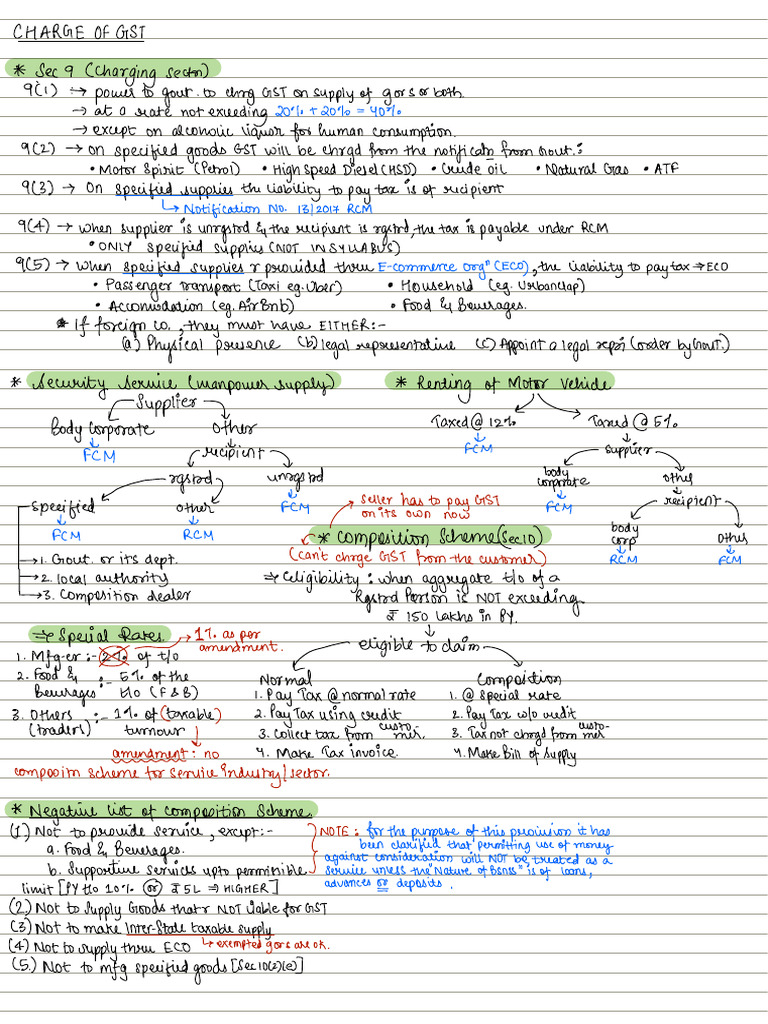 CHARGE OF GST
* Sec 9 (Charging sectn)
9(1) → power to govt. to chrg GST on supply of g or s or both.
→ at a rate not exceeding 20% + 20% = 40%
→ except on alcoholic liquor for human consumption.
9(2) → on specified goods GST will be chrgd from the notificatn from Govt.:
• Motor Spirit (Petrol) • High Speed Diesel (HSD) • Crude Oil • Natural Gas • ATF
9(3) → On specified supplies the liability to pay tax is of recipient
↳ Notification No. 13/2017 RCM
9(4) → when supplier is unrgstrd & the recipient is rgstrd, the tax is payable under RCM
• ONLY specified supplies (NOT IN SYLLABUS)
9(5) → When specified supplies r provided thru E-commerce orgⁿ (ECO), the liability to pay tax ⇒ ECO
• Passenger transport (Taxi eg. Uber) • Household (eg. Urbanclap)
• Accomodation (eg. Air Bnb) • Food & Beverages.
* If foreign co., they must have EITHER:-
(a) Physical presence (b) legal representative (c) Appoint a legal repsn (order by Govt.)
* Security Service (manpower supply)
Supplier
Body Corporate Other
FCM recipient
rgstrd unrgstrd
specified other FCM
FCM RCM
→ 1. Govt. or its dept.
→ 2. local authority
→ 3. Competition dealer
* Renting of Motor Vehicle
Taxed @ 12% Taxed @ 5%
FCM supplier
body corporate other
FCM recipient
body corp other
RCM FCM
→ seller has to pay GST
on its own now
* Composition Scheme (Sec 10)
(can't chrge GST from the customer)
⇒ Eligibility : when aggregate t/o of a
Rgstrd Person is NOT exceeding
₹ 150 lakhs in PY.
eligible to claim
Normal
1. Pay Tax @ normal rate
2. Pay Tax using credit
3. Collect tax from customer.
4. Make Tax invoice.
Composition
1. @ special rate
2. Pay Tax w/o credit
3. Tax not chrgd from customer
4. Make Bill of Supply
⇒ Special Rates
1. Mfg-er :- 2% of t/o → 1% as per
amendment.
2. Food & Beverages :- 5% of the
t/o (F & B)
3. Others (traders) :- 1% of (taxable)
turnour
amendment: no
compositn scheme for service industry/sector.
* Negative list of composition Scheme
(1) Not to provide service, except:-
a. Food & Beverages.
b. Supportive services upto permissible
limit [PY t/o 10% or ₹ 5L ⇒ HIGHER]
NOTE: for the purpose of this provision it has
been clarified that permitting use of money
against consideration will NOT be treated as a
service unless the "Nature of Bsnss" is of loans,
advances or deposits.
(2) Not to supply Goods that r NOT liable for GST
(3) Not to make Inter-State taxable supply
↳ exempted g or s are ok.
(4) Not to supply thru ECO
(5.) Not to mfg specified goods [Sec 10(2)(e)]